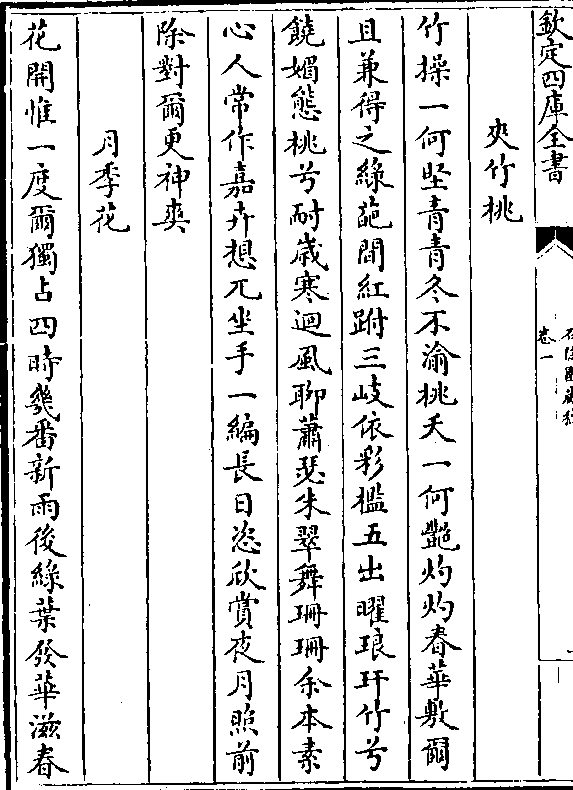 欽定四庫全書
卷一
夾竹桃
竹操一何堅青青冬不渝桃夭一何艶灼灼春華敷爾
且兼得之綠葩間紅跗三岐依彩檻五出曜琅玕竹兮
饒媚態桃兮耐歲寒迴風聊蕭瑟朱翠舞珊珊余本素
心人常作嘉卉想兀坐手一編長日恣欣賞夜月照前
除對爾更神爽
月季花
花開惟一度爾獨占四時幾番新雨後綠葉發華滋春